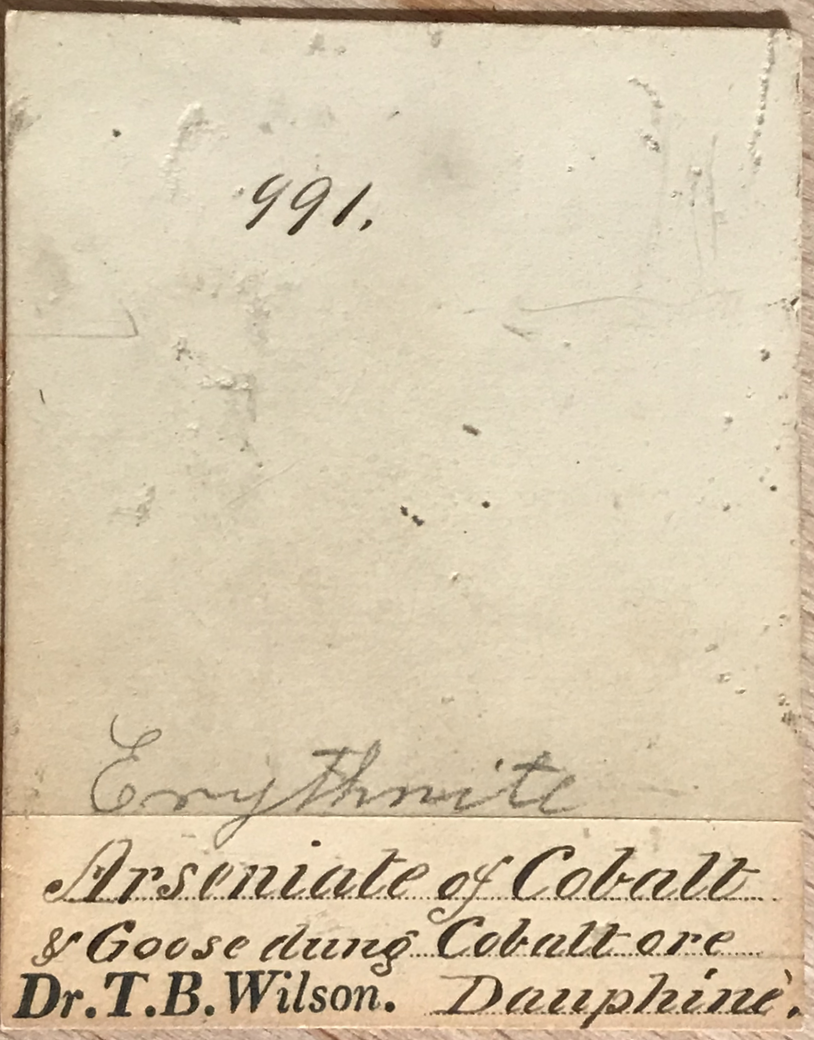 991.
Erythrite
Arseniate of Cobalt
& Goose dung Cobalt ore
Dr. T. B. Wilson. Dauphinè.